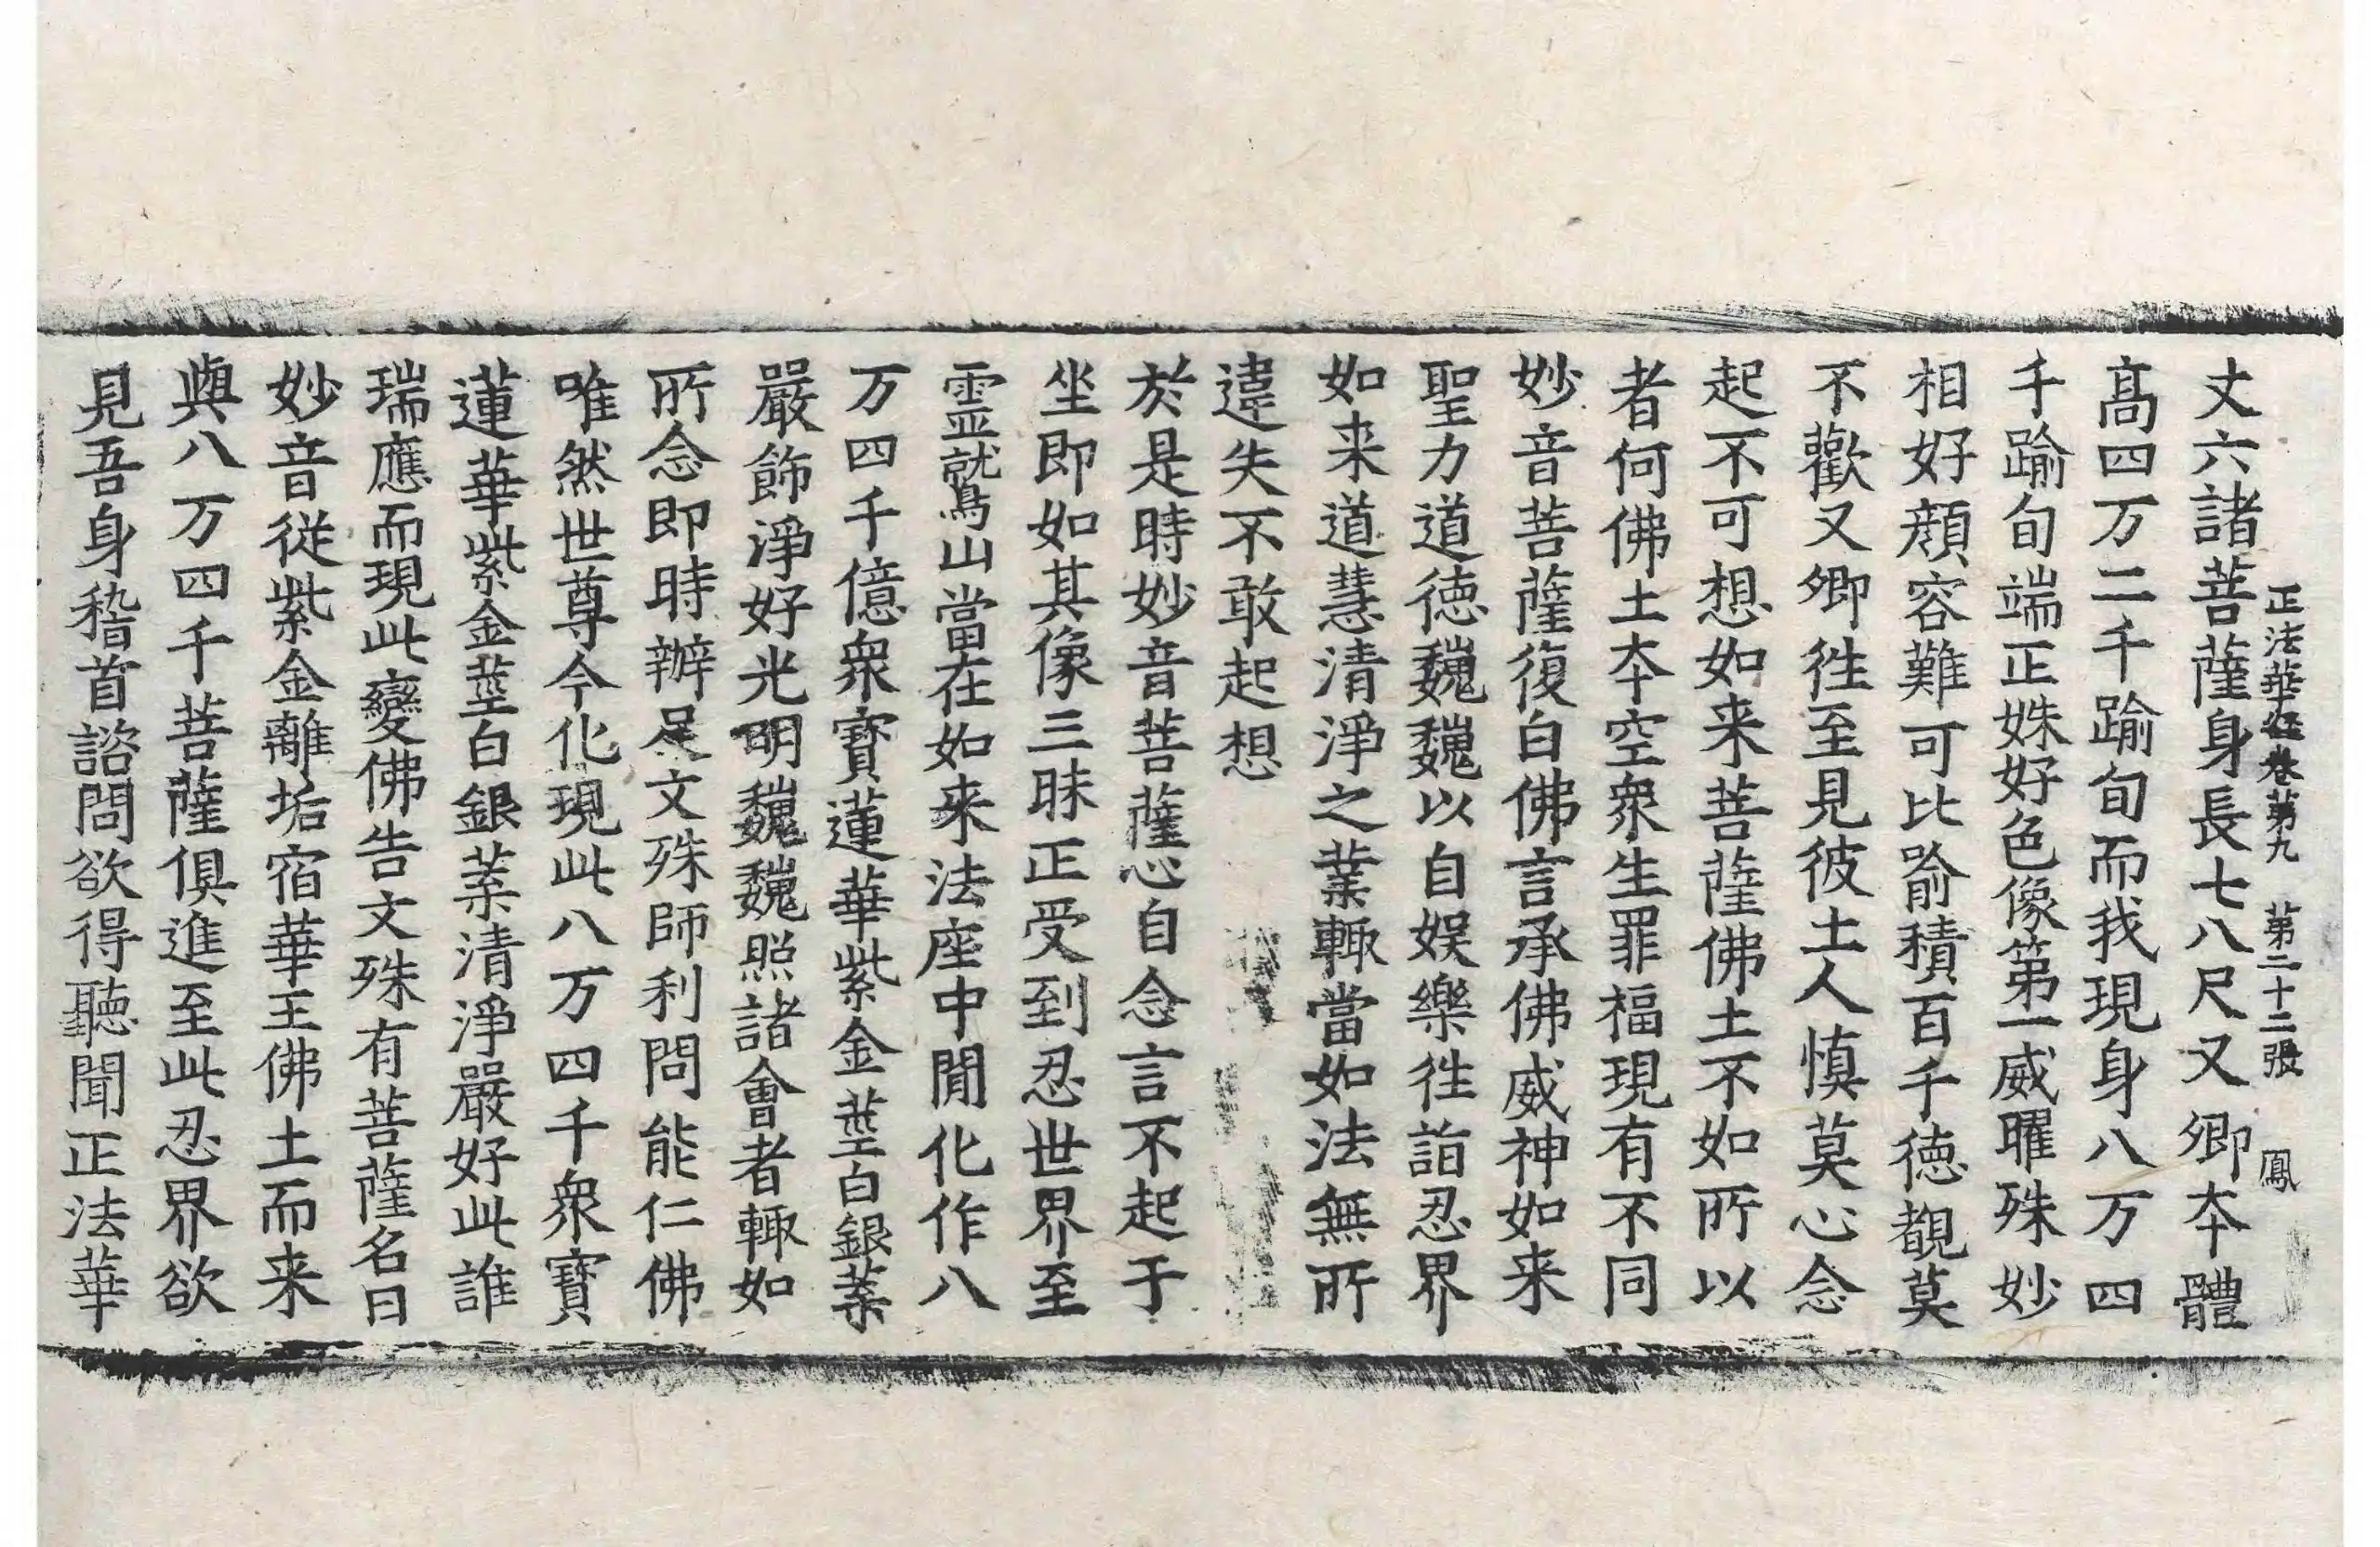 正法華經卷第九 第二十二張 鳳
丈六諸菩薩身長七八尺又卿夲體
髙四万二千踰旬而我現身八万四
千踰旬端正姝好色像第一威曜殊妙
相好顔容難可比喻積百千德覩莫
不歡又卿徃至見彼土人慎莫心念
起不可想如来菩薩佛土不如所以
者何佛土夲空衆生罪福現有不同
妙音菩薩復白佛言承佛威神如来
聖力道德巍巍以自娱樂徃詣忍界
如来道慧清淨之業輙當如法無所
違失不敢起想
於是時妙音菩薩心自念言不起于
坐即如其像三昧正受到忍世界至
霊鷲山當在如来法座中閒化作八
万四千億衆寳蓮華紫金莖白銀葉
嚴飾淨好光明巍巍照諸會者輙如
所念即時辦足文殊師利問能仁佛
唯然世尊今化現此八万四千衆寳
蓮華紫金莖白銀葉清淨嚴好此誰
瑞應而現此變佛告文殊有菩薩名曰
妙音從紫金離垢宿華王佛土而来
與八万四千菩薩俱進至此忍界欲
見吾身稽首諮問欲得聽聞正法華